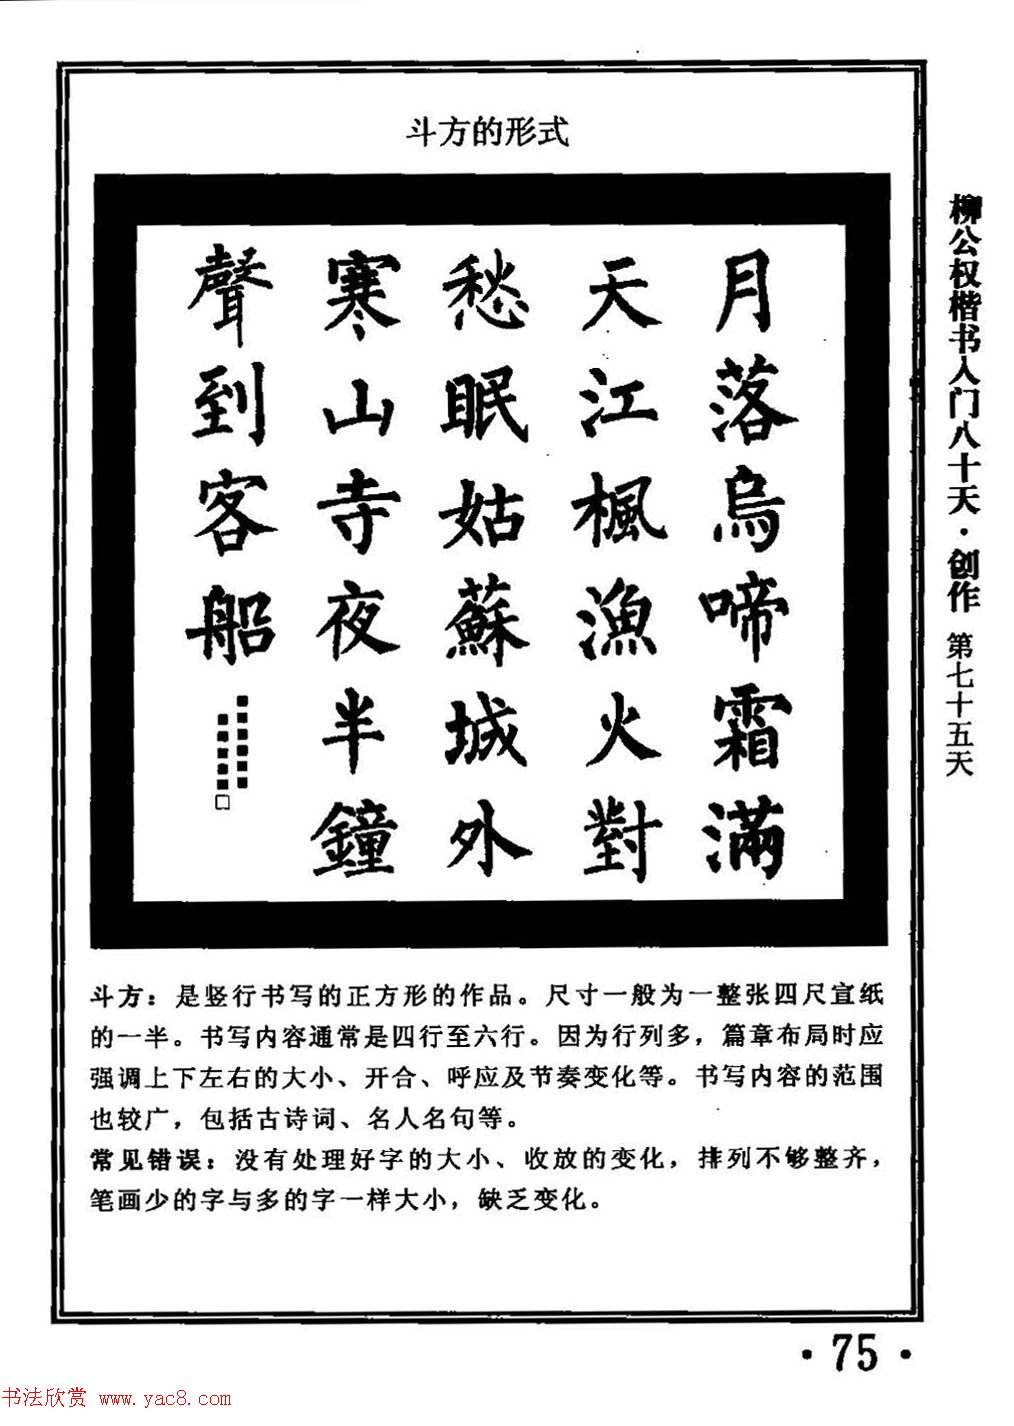 斗方的形式
月落烏啼霜滿
天江楓漁火對
愁眠姑蘇城外
寒山寺夜半鐘
聲到客船
斗方：是竖行书写的正方形的作品。尺寸一般为一整张四尺宣纸
的一半。书写内容通常是四行至六行。因为行列多，篇章布局时应
强调上下左右的大小、开合、呼应及节奏变化等。书写内容的范围
也较广，包括古诗词、名人名句等。
常见错误：没有处理好字的大小、收放的变化，排列不够整齐，
笔画少的字与多的字一样大小，缺乏变化。
柳公权楷书入门八十天·创作 第七十五天
·75·
书法欣赏 www.yac8.com